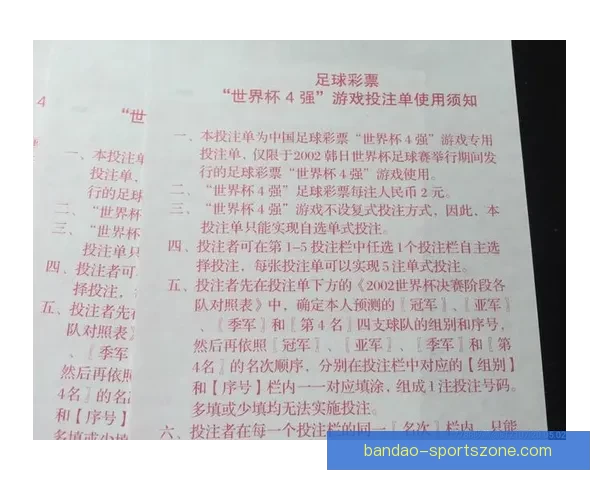 足球彩票
“世界杯 4 强”游戏投注单使用须知
一、本投注单为中国足球彩票“世界杯 4 强”游戏专用
投注单，仅限于2002 韩日世界杯足球赛举行期间发
行的足球彩票“世界杯 4 强”游戏使用。
二、“世界杯 4 强”足球彩票每注人民币 2 元。
三、“世界杯 4 强”游戏不设复式投注方式，因此，本
投注单只能实现自选单式投注。
四、投注者可在第 1–5 投注栏中任选 1个投注栏自主选
择投注，每张投注单可以实现 5 注单式投注。
五、投注者先在投注单下方的《2002世界杯决赛阶段各
队对照表》中，确定本人预测的〖冠军〗、〖亚军〗
、〖季军〗和〖第 4 名〗四支球队的组别和序号，
然后再依照〖冠军〗、〖亚军〗、〖季军〗和〖第
4名〗的名次顺序，分别在投注栏中对应的【组别】
和【序号】栏内一一对应填涂，组成 1 注投注号码。
多填或少填均无法实施投注。
六、投注者在每一个投注栏的同一〖名次〗栏内，只能
4
“世
一、本投注单
投注单，
行的足球
二、“世界杯
三、“世界杯
投注单只
四、投注者可
择投注，
五、投注者先在
队对照表》
、〖季军
然后再依照
4名〗的名
和【序号】
多填或少填
bandao-sportszone.com